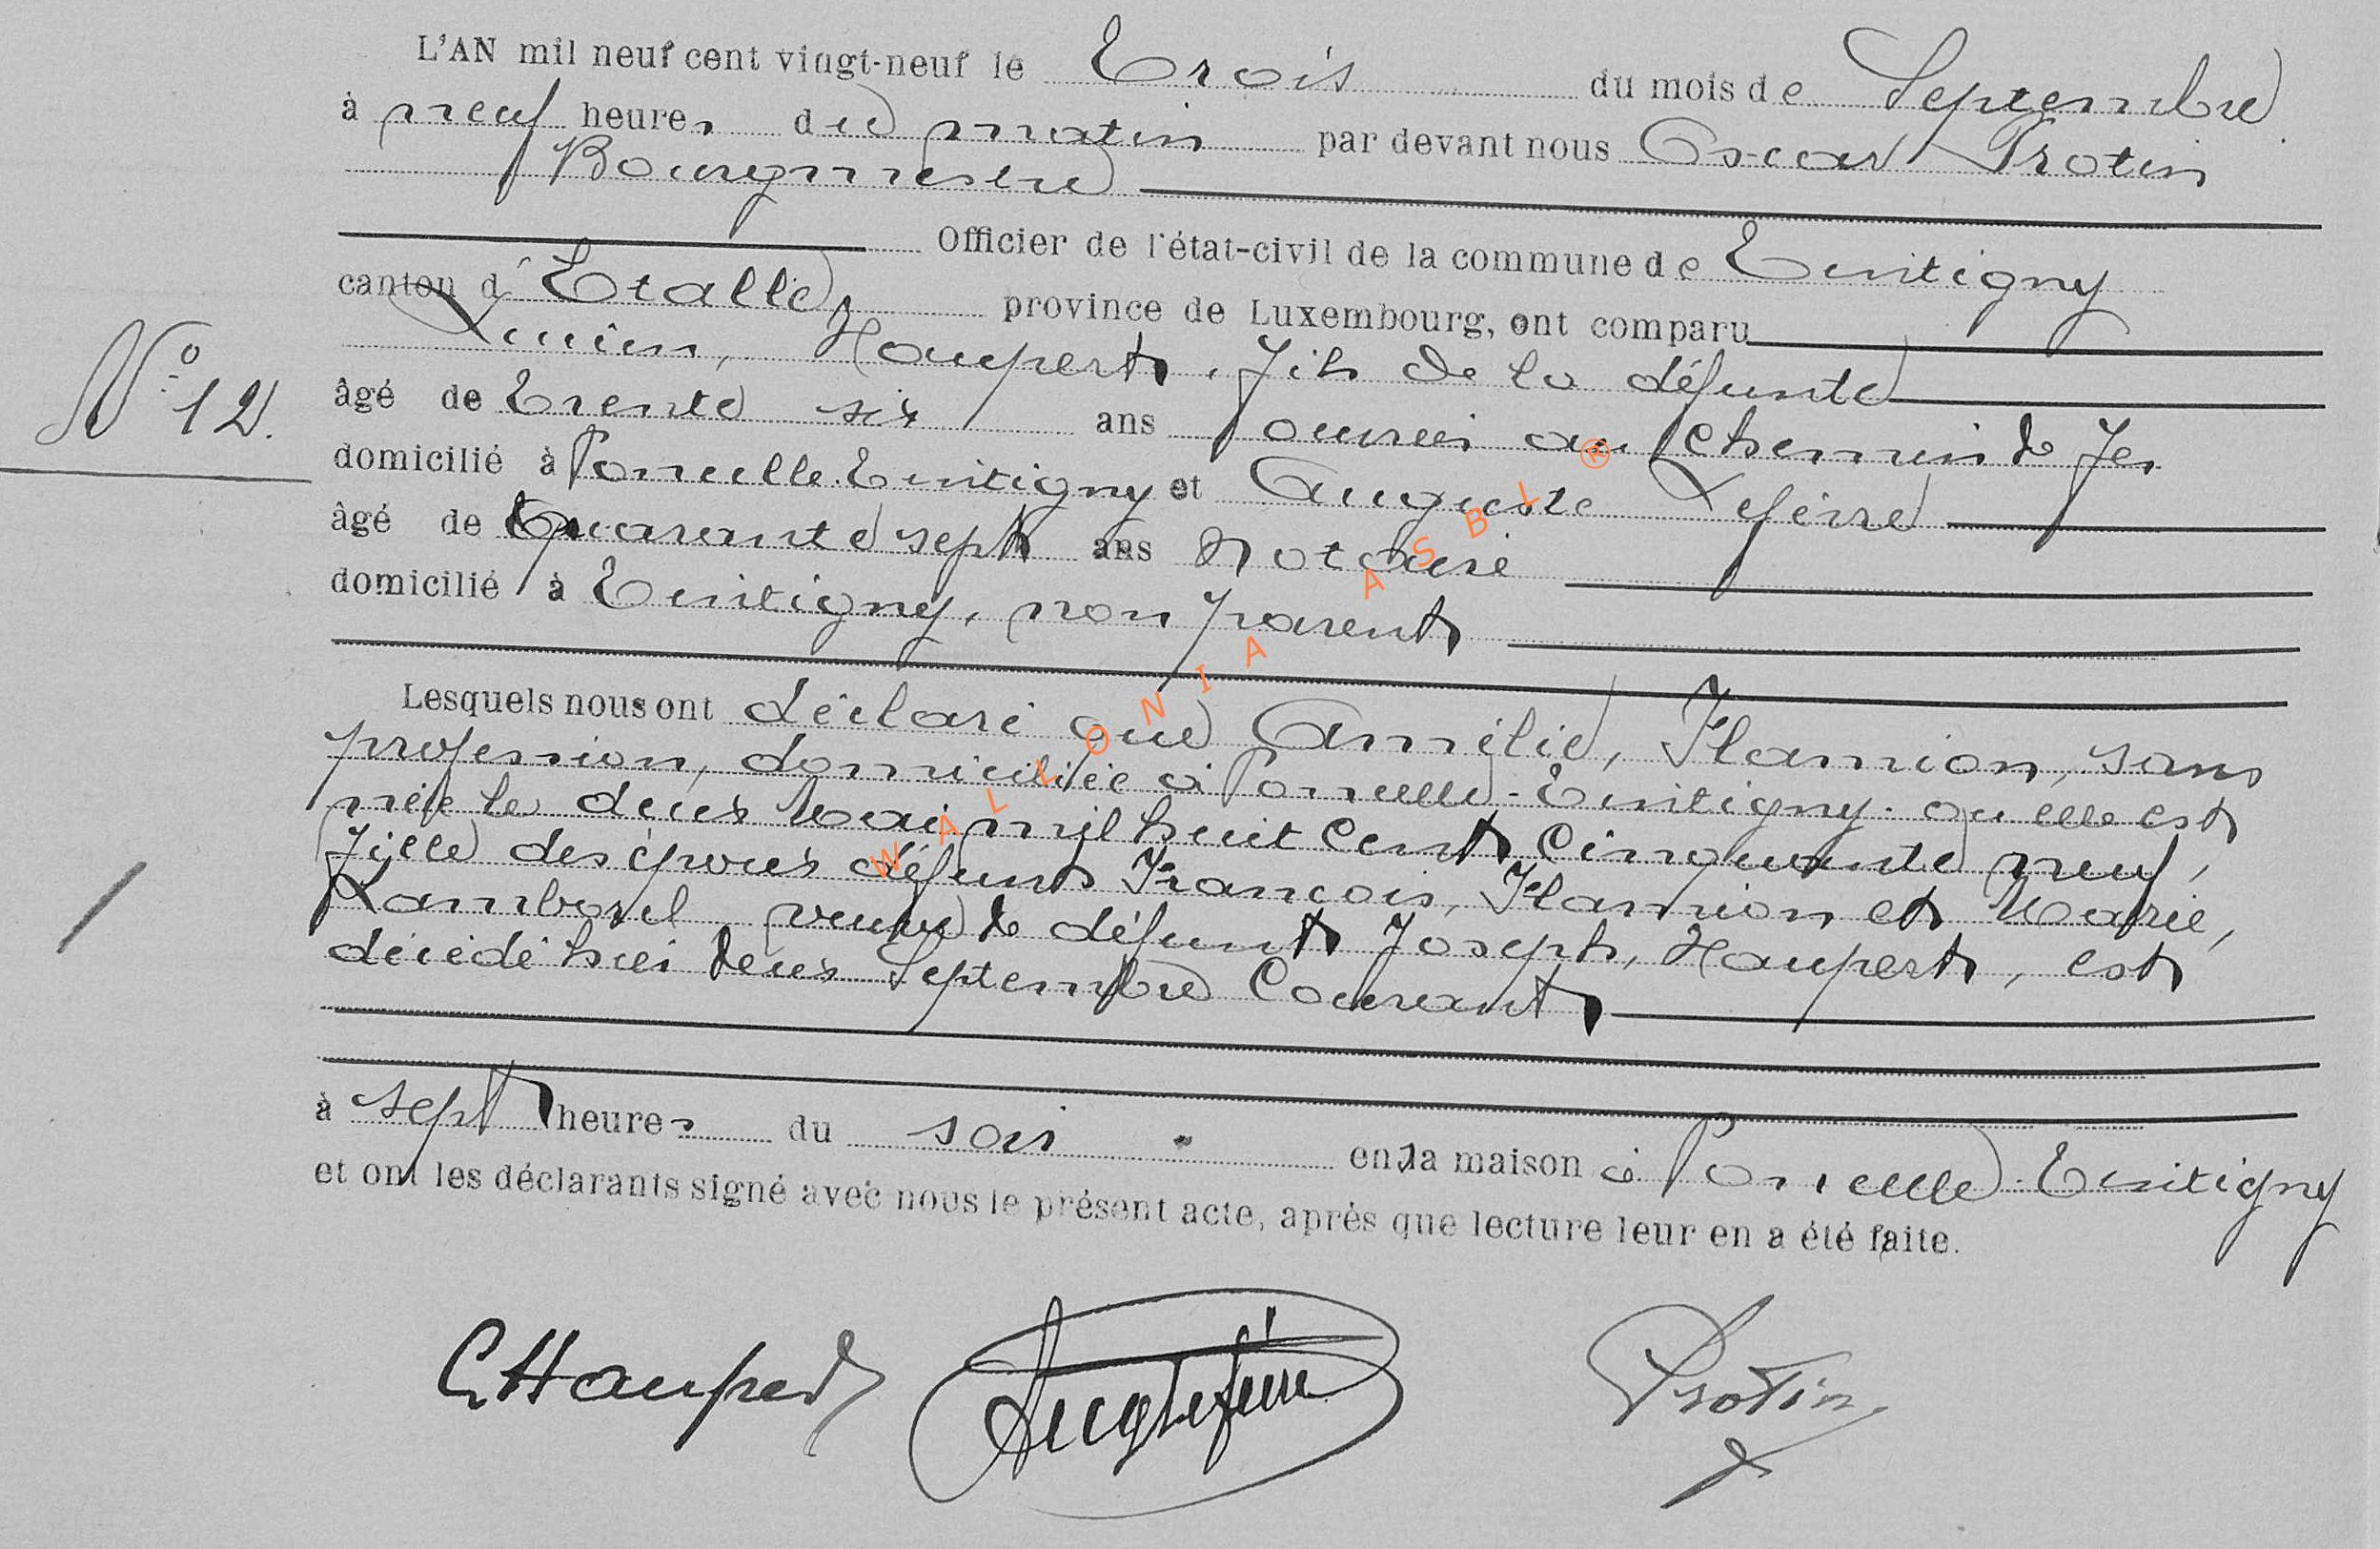 L'AN mil neuf cent vingt-neuf le Trois du mois de Septembre
à neuf heures du matin par devant nous Oscar Protin
Bourgmestre
Officier de l'état-civil de la commune de Tintigny
canton d'Etalle, province de Luxembourg, ont comparu
Lucien, Haupert, fils de la défunte
N° 12.
âgé de Trente six ans ouvrier au chemin de fer
domicilié à Poncelle-Tintigny et Auguste Lefèvre
âgé de Quarante sept ans Notaire
domicilié à Tintigny, non parent
Lesquels nous ont déclaré que Amélie, Flamion, sans
profession, domiciliée à Poncelle-Tintigny. où elle est
née le deux Mai mil huit cent cinquante neuf,
fille des époux défunts François, Flamion et Marie,
Lamborel, veuve de défunt Joseph, Haupert, est
décédé hier deux Septembre Courant
à sept heures du soir en la maison à Poncelle-Tintigny
et ont les déclarants signé avec nous le présent acte, après que lecture leur en a été faite.
Haupert Aug Lefèvre Protin
WALLONIA ASBL ®